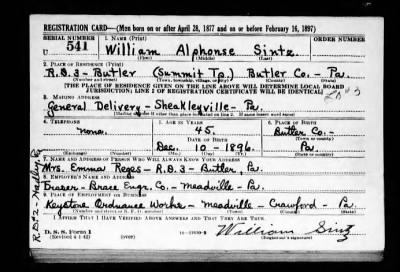 REGISTRATION CARD—(Men born on or after April 28, 1877 and on or before February 16, 1897)
SERIAL NUMBER 1. NAME (Print) ORDER NUMBER
U 541 William Alphonse Sintz
(First) (Middle) (Last)
2. PLACE OF RESIDENCE (Print)
R.D.3-Butler (Summit Tp.) Butler Co.- Pa.
(Number and street) (Town, township, village, or city) (County) (State)
[THE PLACE OF RESIDENCE GIVEN ON THE LINE ABOVE WILL DETERMINE LOCAL BOARD
JURISDICTION; LINE 2 OF REGISTRATION CERTIFICATE WILL BE IDENTICAL]
3. MAILING ADDRESS
General Delivery - Sheakleyville - Pa.
[Mailing address if other than place indicated on line 2. If same insert word same]
4. TELEPHONE 5. AGE IN YEARS 6. PLACE OF BIRTH
none. 45. Butler Co.-
DATE OF BIRTH (Town or county)
Dec. 10 - 1896. Pa.
(Mo.) (Day) (Yr.) (State or country)
7. NAME AND ADDRESS OF PERSON WHO WILL ALWAYS KNOW YOUR ADDRESS
Mrs. Emma Reges - R.D.3 - Butler, Pa.
8. EMPLOYER'S NAME AND ADDRESS
Fraser-Brace Engr. Co. - Meadville - Pa.
9. PLACE OF EMPLOYMENT OR BUSINESS
Keystone Ordnance Works - Meadville - Crawford - Pa.
(Number and street or R. F. D. number) (Town) (County) (State)
I AFFIRM THAT I HAVE VERIFIED ABOVE ANSWERS AND THAT THEY ARE TRUE.
D. S. S. Form 1
(Revised 4-1-42) (over)
William Sintz
(Registrant's signature)